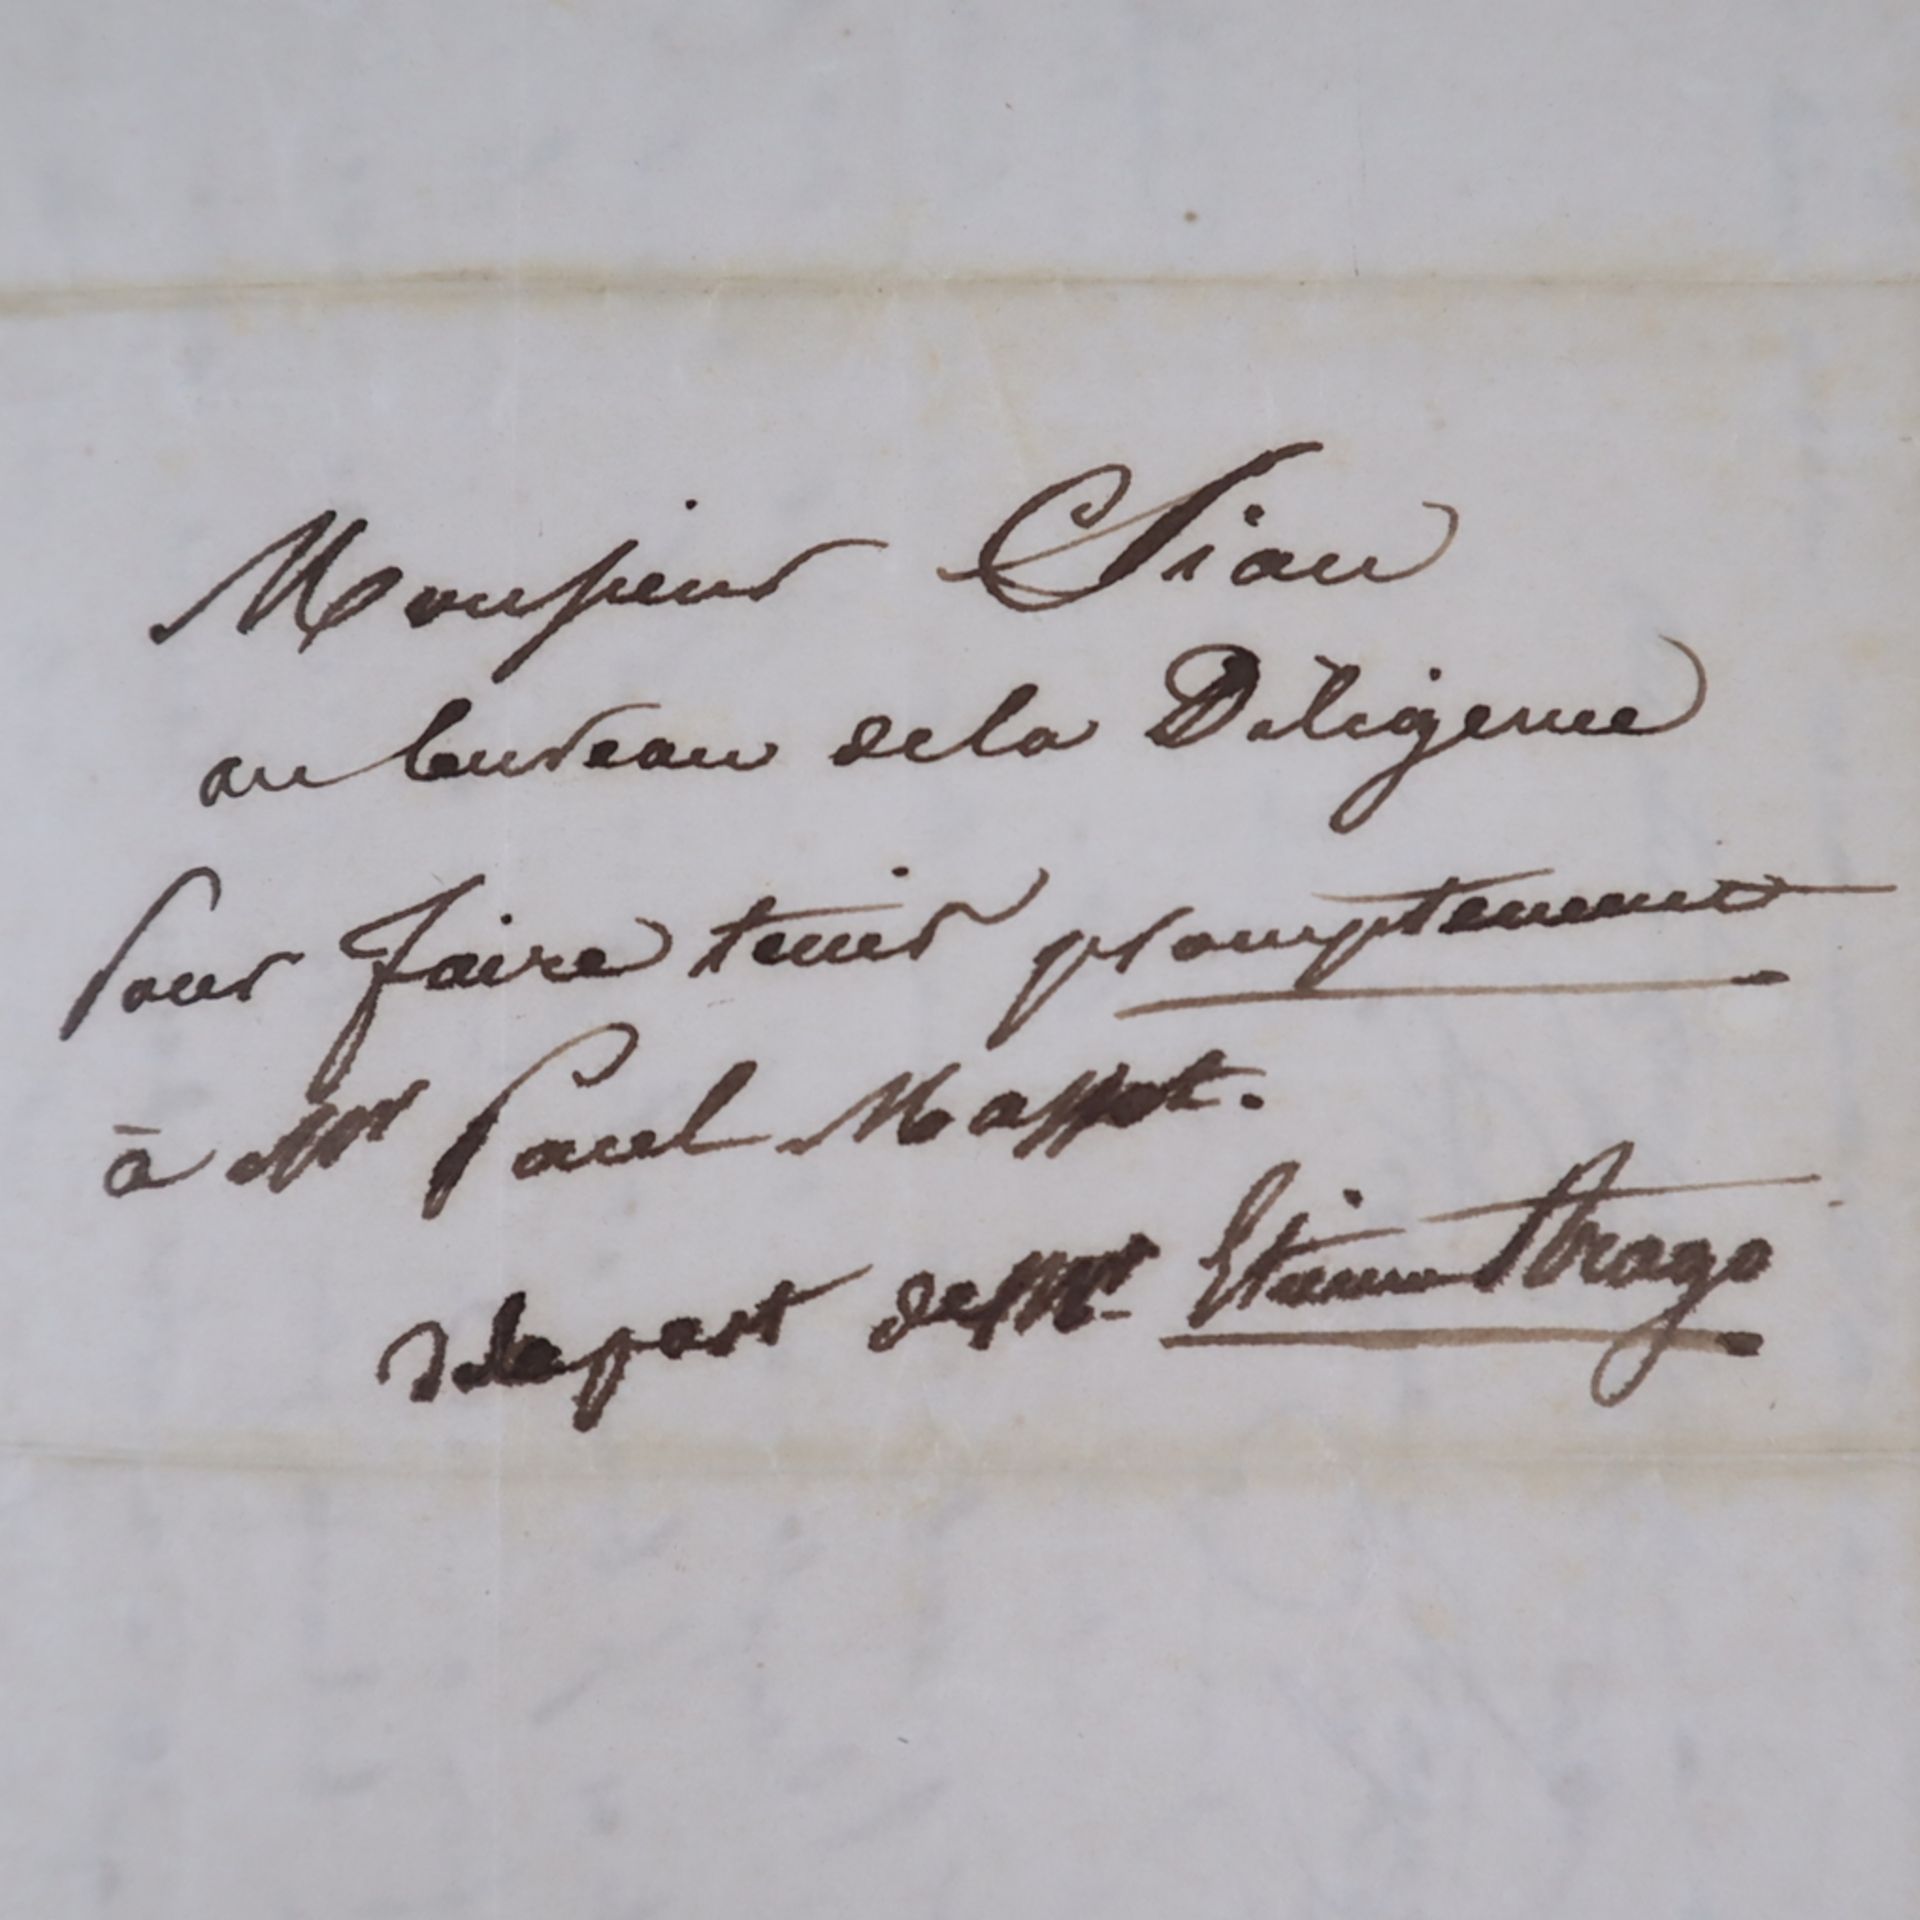 Monsieur Siau
au bureau de la Diligence
Pour faire tenir promptement
à Mr Paul Massot.
de la part de Mr Etienne Arago